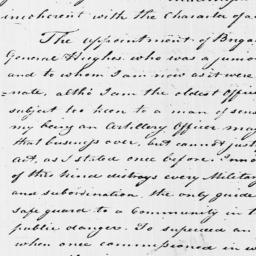 incoherent with the Character of a
The appointment of Briga
General Hughes who was a junio
and to whom I am now as it were
nate, altho I am the oldest Offic
subject too keen to a man of sens
my being an Artillery Officer may
that business over, but cannot just
act, as I stated once before.
of this kind distroys every Militar
and subordination, the only guide
safe guard to a Community in t
public danger. To superceed an
when once commissioned in w